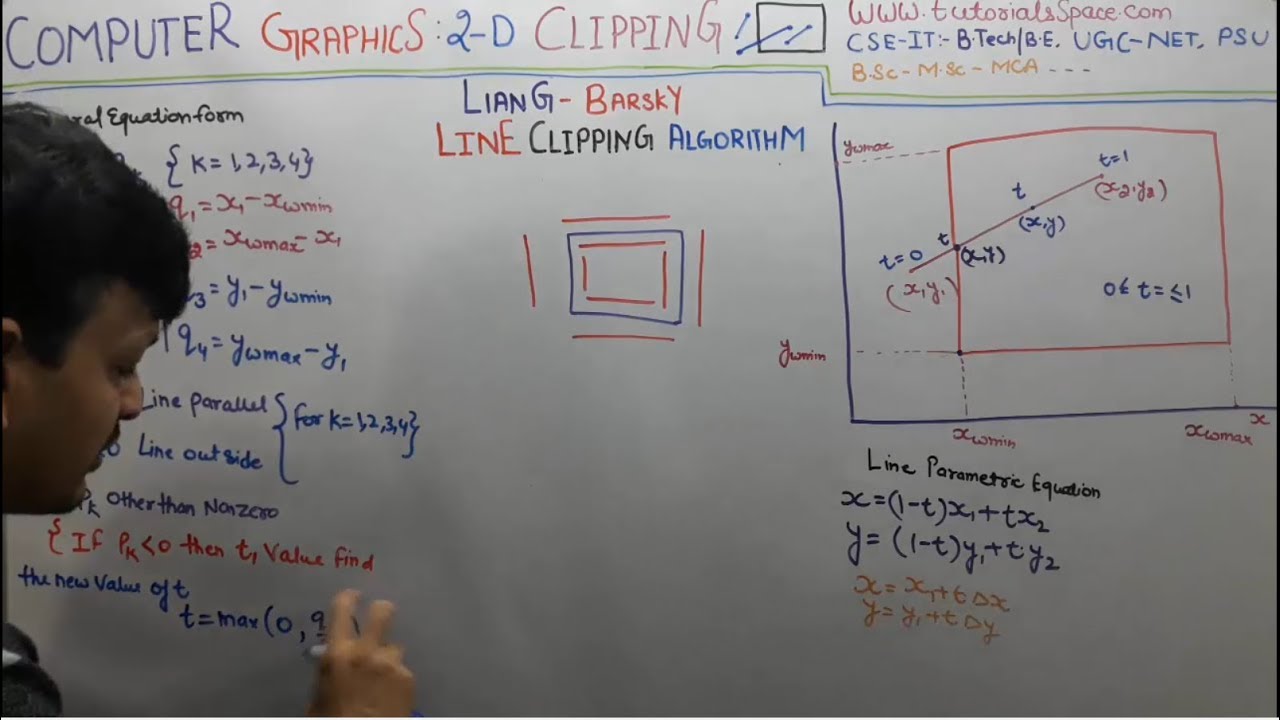 COMPUTER GRAPHICS: 2-D CLIPPING
WWW.tutorialsSpace.com
CSE-IT:- B.Tech/B.E. UGC-NET, PSU
B.Sc - M.Sc - MCA ---
LIANG-BARSKY
LINE CLIPPING ALGORITHM
Equation form
{K=1,2,3,4}
q₁ = x₁ - xwmin
₂ = xwmax - x₁
₃ = y₁ - ywmin
q₄ = ywmax - y₁
Line parallel
Line outside
{for K=1,2,3,4}
Pk Other than Nonzero
{ If Pk<0 then t₁ Value find
the new Value of t
t=max(0, q
ywmax
t=1
(x₂,y₂)
t
(x,y)
t
(x,y)
t=0
(x₁y₁)
0≤ t = ≤1
ywmin
xwmin
xwmax
x
Line Parametric Equation
x=(1-t)x₁+tx₂
y=(1-t)y₁+ty₂
x=x₁+tΔx
y=y₁+tΔy